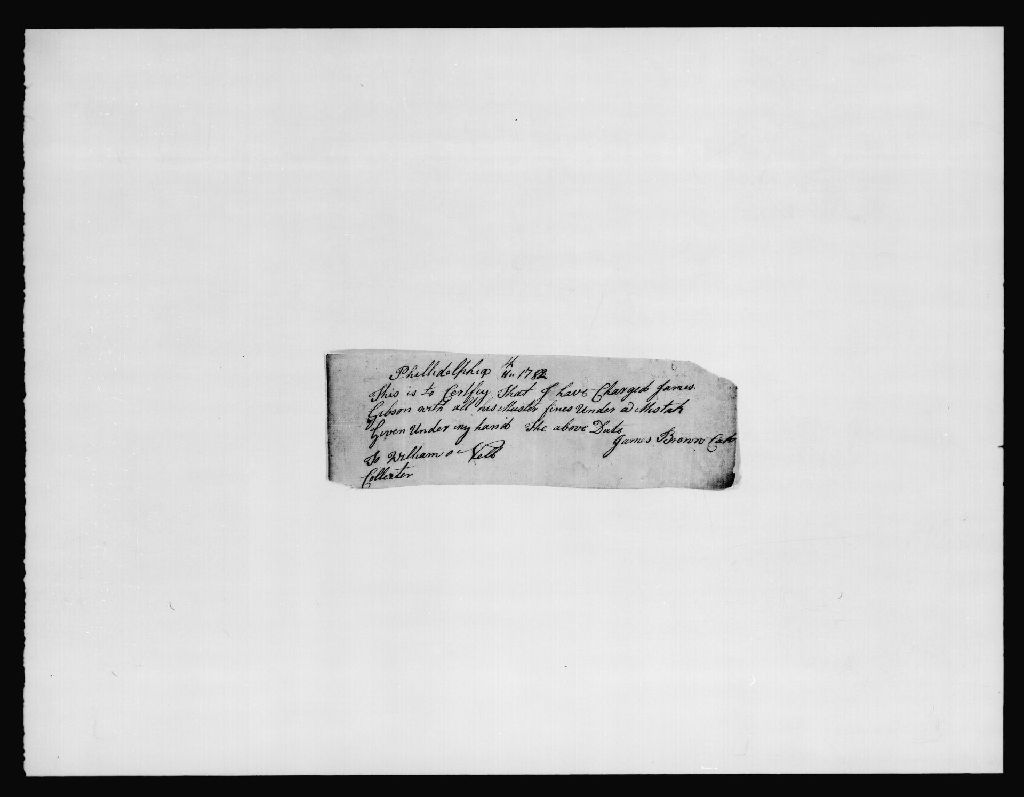 Philledelphia 1782
This is to Certfey That I have Charged James
Gibson with all his Muster fines Under a Mistak
Given Under my hand the above Date
James Brown Capt
To William
Collector